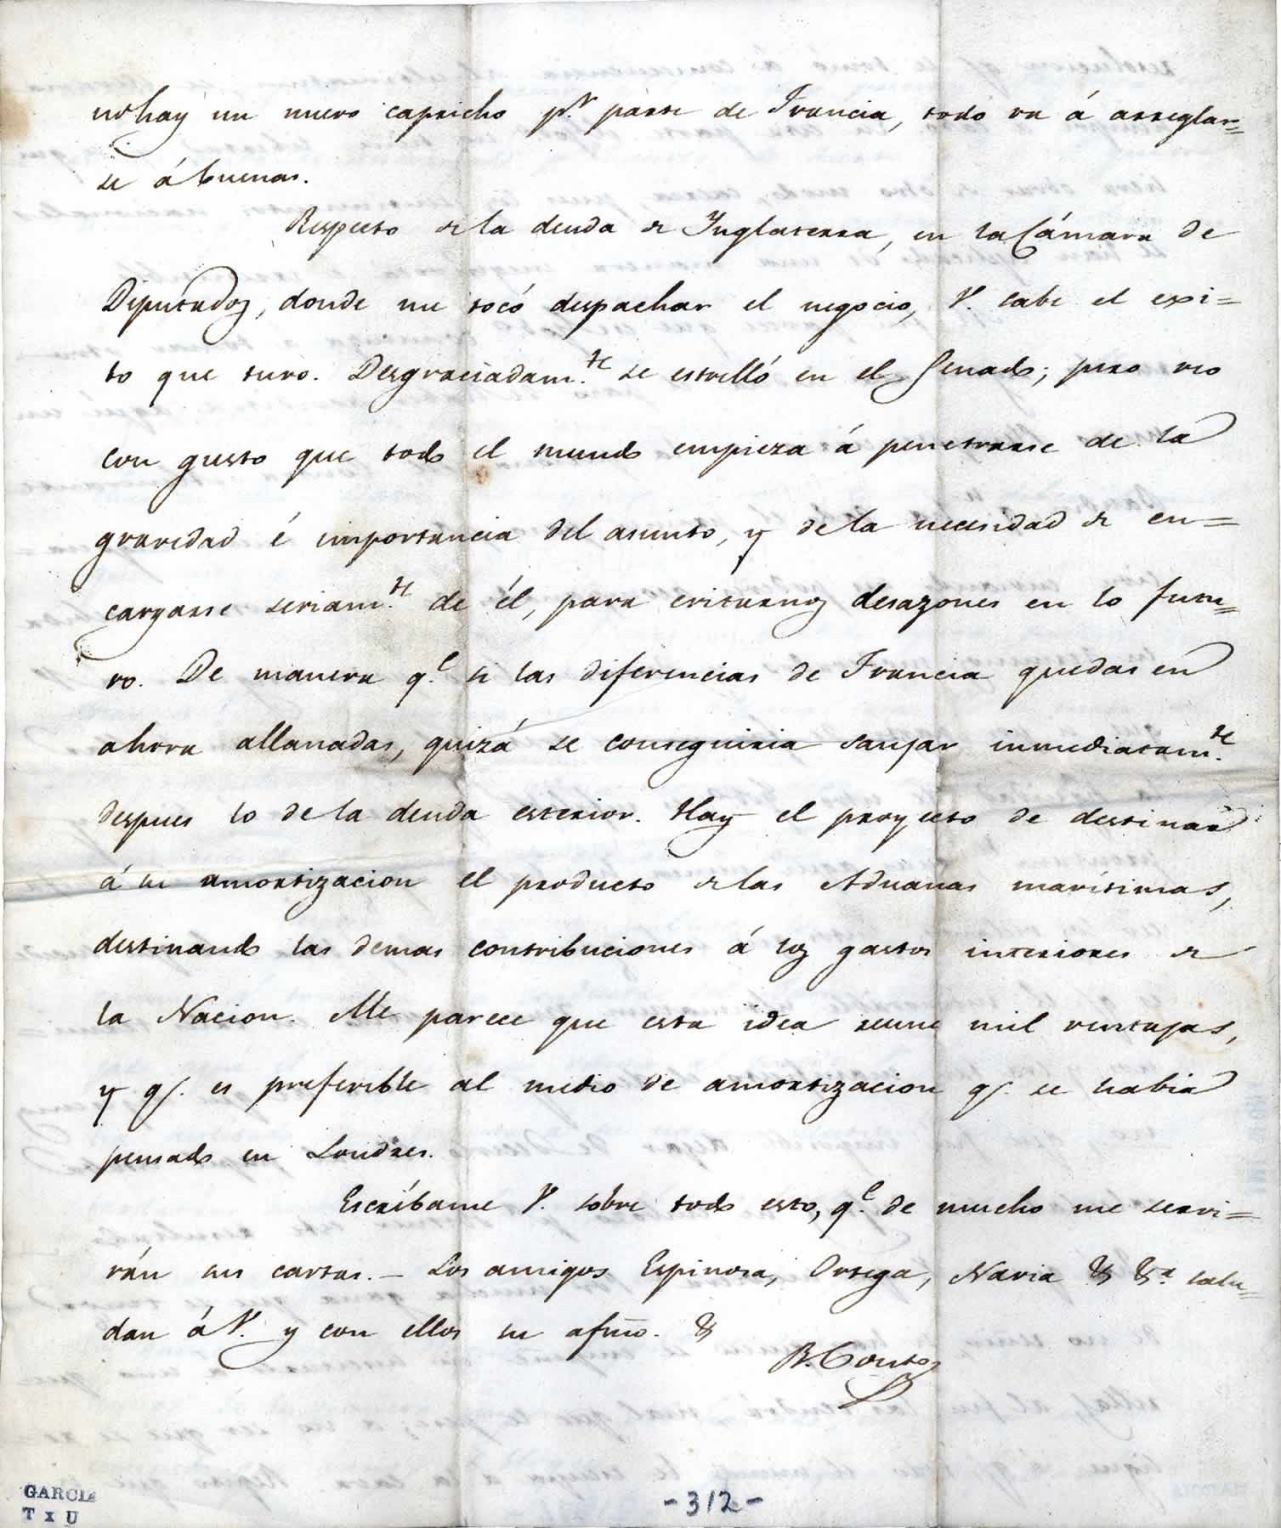 no hay un nuevo capricho pr. parte de Francia, todo va á arreglar=
se á buenas.
Respecto de la deuda de Ynglaterra, en la Cámara de
Diputados, donde me tocó despachar el negocio, V. sabe el exi=
to que tuvo. Desgraciadam.te se estrelló en el Senado; pero veo
con gusto que todo el mundo empieza á penetrarse de la
gravedad é importancia del asunto, y de la necesidad de en=
cargarse seriam.te de él, para evitarnos desazones en lo futu=
ro. De manera q.e si las diferencias de Francia quedasen
ahora allanadas, quizá se conseguiria sanjar inmediatam.te
despues lo de la deuda esterior. Hay el proyecto de destinar
á su amortizacion el producto de las Aduanas marítimas,
destinando las demas contribuciones á los gastos interiores de
la Nacion. Me parece que esta idea reune mil ventajas,
y q. es preferible al medio de amortizacion q. se habia
pensado en Londres.
Escríbame V. sobre todo esto, q.e de mucho me servi=
rán sus cartas. — Los amigos Espinosa, Ortega, Navia & &.a salu=
dan á V. y con ellos su afmo. &
B. Couto
GARCIA
T x U
-312-